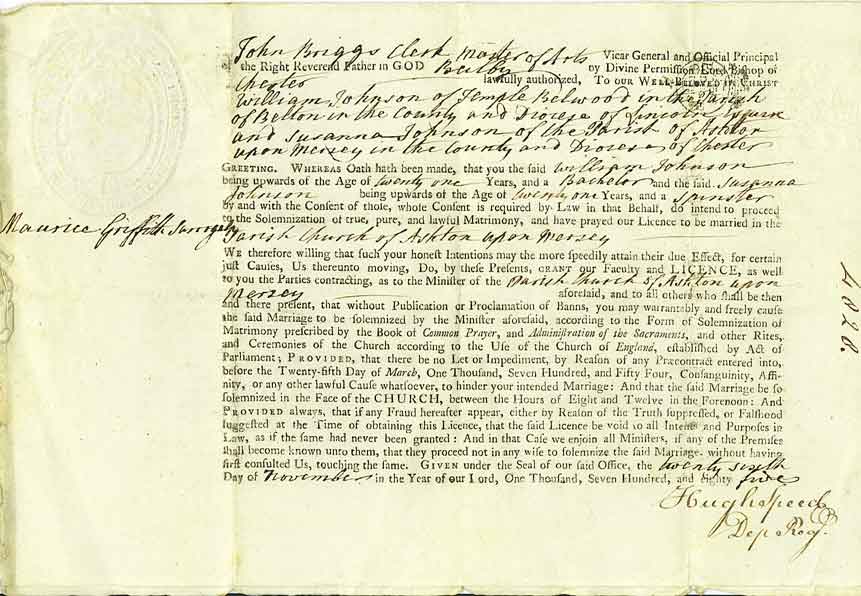 John Briggs Clerk Master of Arts Vicar General and Official Principal
of the Right Reverend Father in GOD Beilby by Divine Permission Lord Bishop of
Chester lawfully authorized, TO OUR WELL-BELOVED IN CHRIST
William Johnson of Temple Belwood in the Parish
of Belton in the County and Diocese of Lincoln Esquire
and Susanna Johnson of the Parish of Ashton
upon Mersey in the County and Diocese of Chester
GREETING. WHEREAS Oath hath been made, that you the said William Johnson
being upwards of the Age of twenty one Years, and a Bachelor and the said Susanna
Johnson being upwards of the Age of twenty one Years, and a Spinster
by and with the Consent of those, whose Consent is required by Law in that Behalf, do intend to proceed
to the Solemnization of true, pure, and lawful Matrimony, and have prayed our Licence to be married in the
Maurice Griffith Surrogate
Parish Church of Ashton upon Mersey
WE therefore willing that such your honest Intentions may the more speedily attain their due Effect, for certain
just Causes, Us thereunto moving, Do, by these Presents, GRANT our Faculty and LICENCE, as well
to you the Parties contracting, as to the Minister of the Parish Church of Ashton upon
Mersey aforesaid, and to all others who shall be then
and there present, that without Publication or Proclamation of Banns, you may warrantably and freely cause
the said Marriage to be solemnized by the Minister aforesaid, according to the Form of Solemnization of
Matrimony prescribed by the Book of Common Prayer, and Administration of the Sacraments, and other Rites,
and Ceremonies of the Church according to the Use of the Church of England, established by Act of
Parliament; PROVIDED, that there be no Let or Impediment, by Reason of any Præcontract entered into,
before the Twenty-fifth Day of March, One Thousand, Seven Hundred, and Fifty Four, Consanguinity, Affi-
nity, or any other lawful Cause whatsoever, to hinder your intended Marriage: And that the said Marriage be so
solemnized in the Face of the CHURCH, between the Hours of Eight and Twelve in the Forenoon: And
PROVIDED always, that if any Fraud hereafter appear, either by Reason of the Truth suppressed, or Falshood
suggested at the Time of obtaining this Licence, that the said Licence be void to all Intents and Purposes in
Law, as if the same had never been granted: And in that Case we enjoin all Ministers, if any of the Premises
shall become known unto them, that they proceed not in any wise to solemnize the said Marriage, without having
first consulted Us, touching the same. GIVEN under the Seal of our said Office, the twenty sixth
Day of November in the Year of our Lord, One Thousand, Seven Hundred, and eighty five
Hugh Speed
Dep Reg.